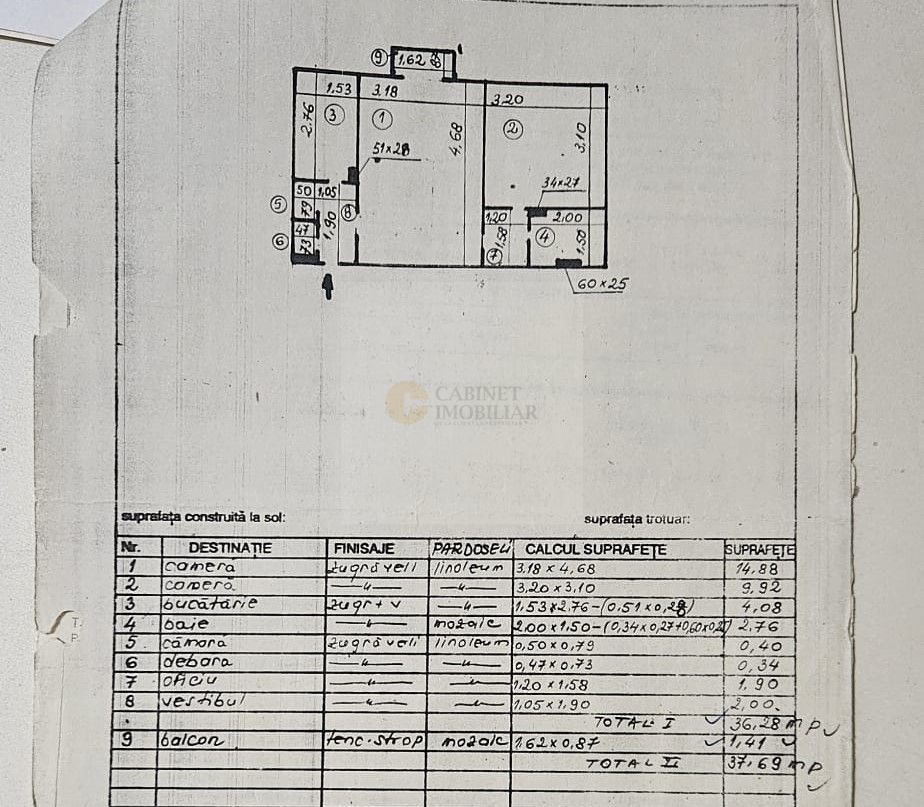 9 1.62 88
1.53 3.18 3.20
2.76 3 1 4.68 2 3,10
51×28
34×27
50 1,05
5 79 8 1,20 2.00
47 1,90 1.58 4 1.50
6 73 7
60×25
CABINET
IMOBILIAR
suprafața construită la sol: suprafața trotuar:
Nr. DESTINAȚIE FINISAJE PARDOSELI CALCUL SUPRAFEȚE SUPRAFEȚE
1 cameră zugrăveli linoleum 3.18 × 4,68 14.88
2 cameră —〃— —〃— 3,20 × 3,10 9,92
3 bucătărie zugr+v —〃— 1,53×2.76-(0,51×0,28) 4,08
4 baie mozaic 2,00×1,50-(0,34×0,27+0,60×0,25) 2,76
5 cămară zugrăveli linoleum 0,50×0,79 0,40
6 debara —〃— —〃— 0,47×0,73 0,34
7 oficiu —〃— —〃— 1,20×1,58 1.90
8 vestibul —〃— —〃— 1,05×1,90 2,00
TOTAL I 36,28 mp
9 balcon tenc.strop mozaic 1,62×0,87 1,41
TOTAL II 37,69 mp